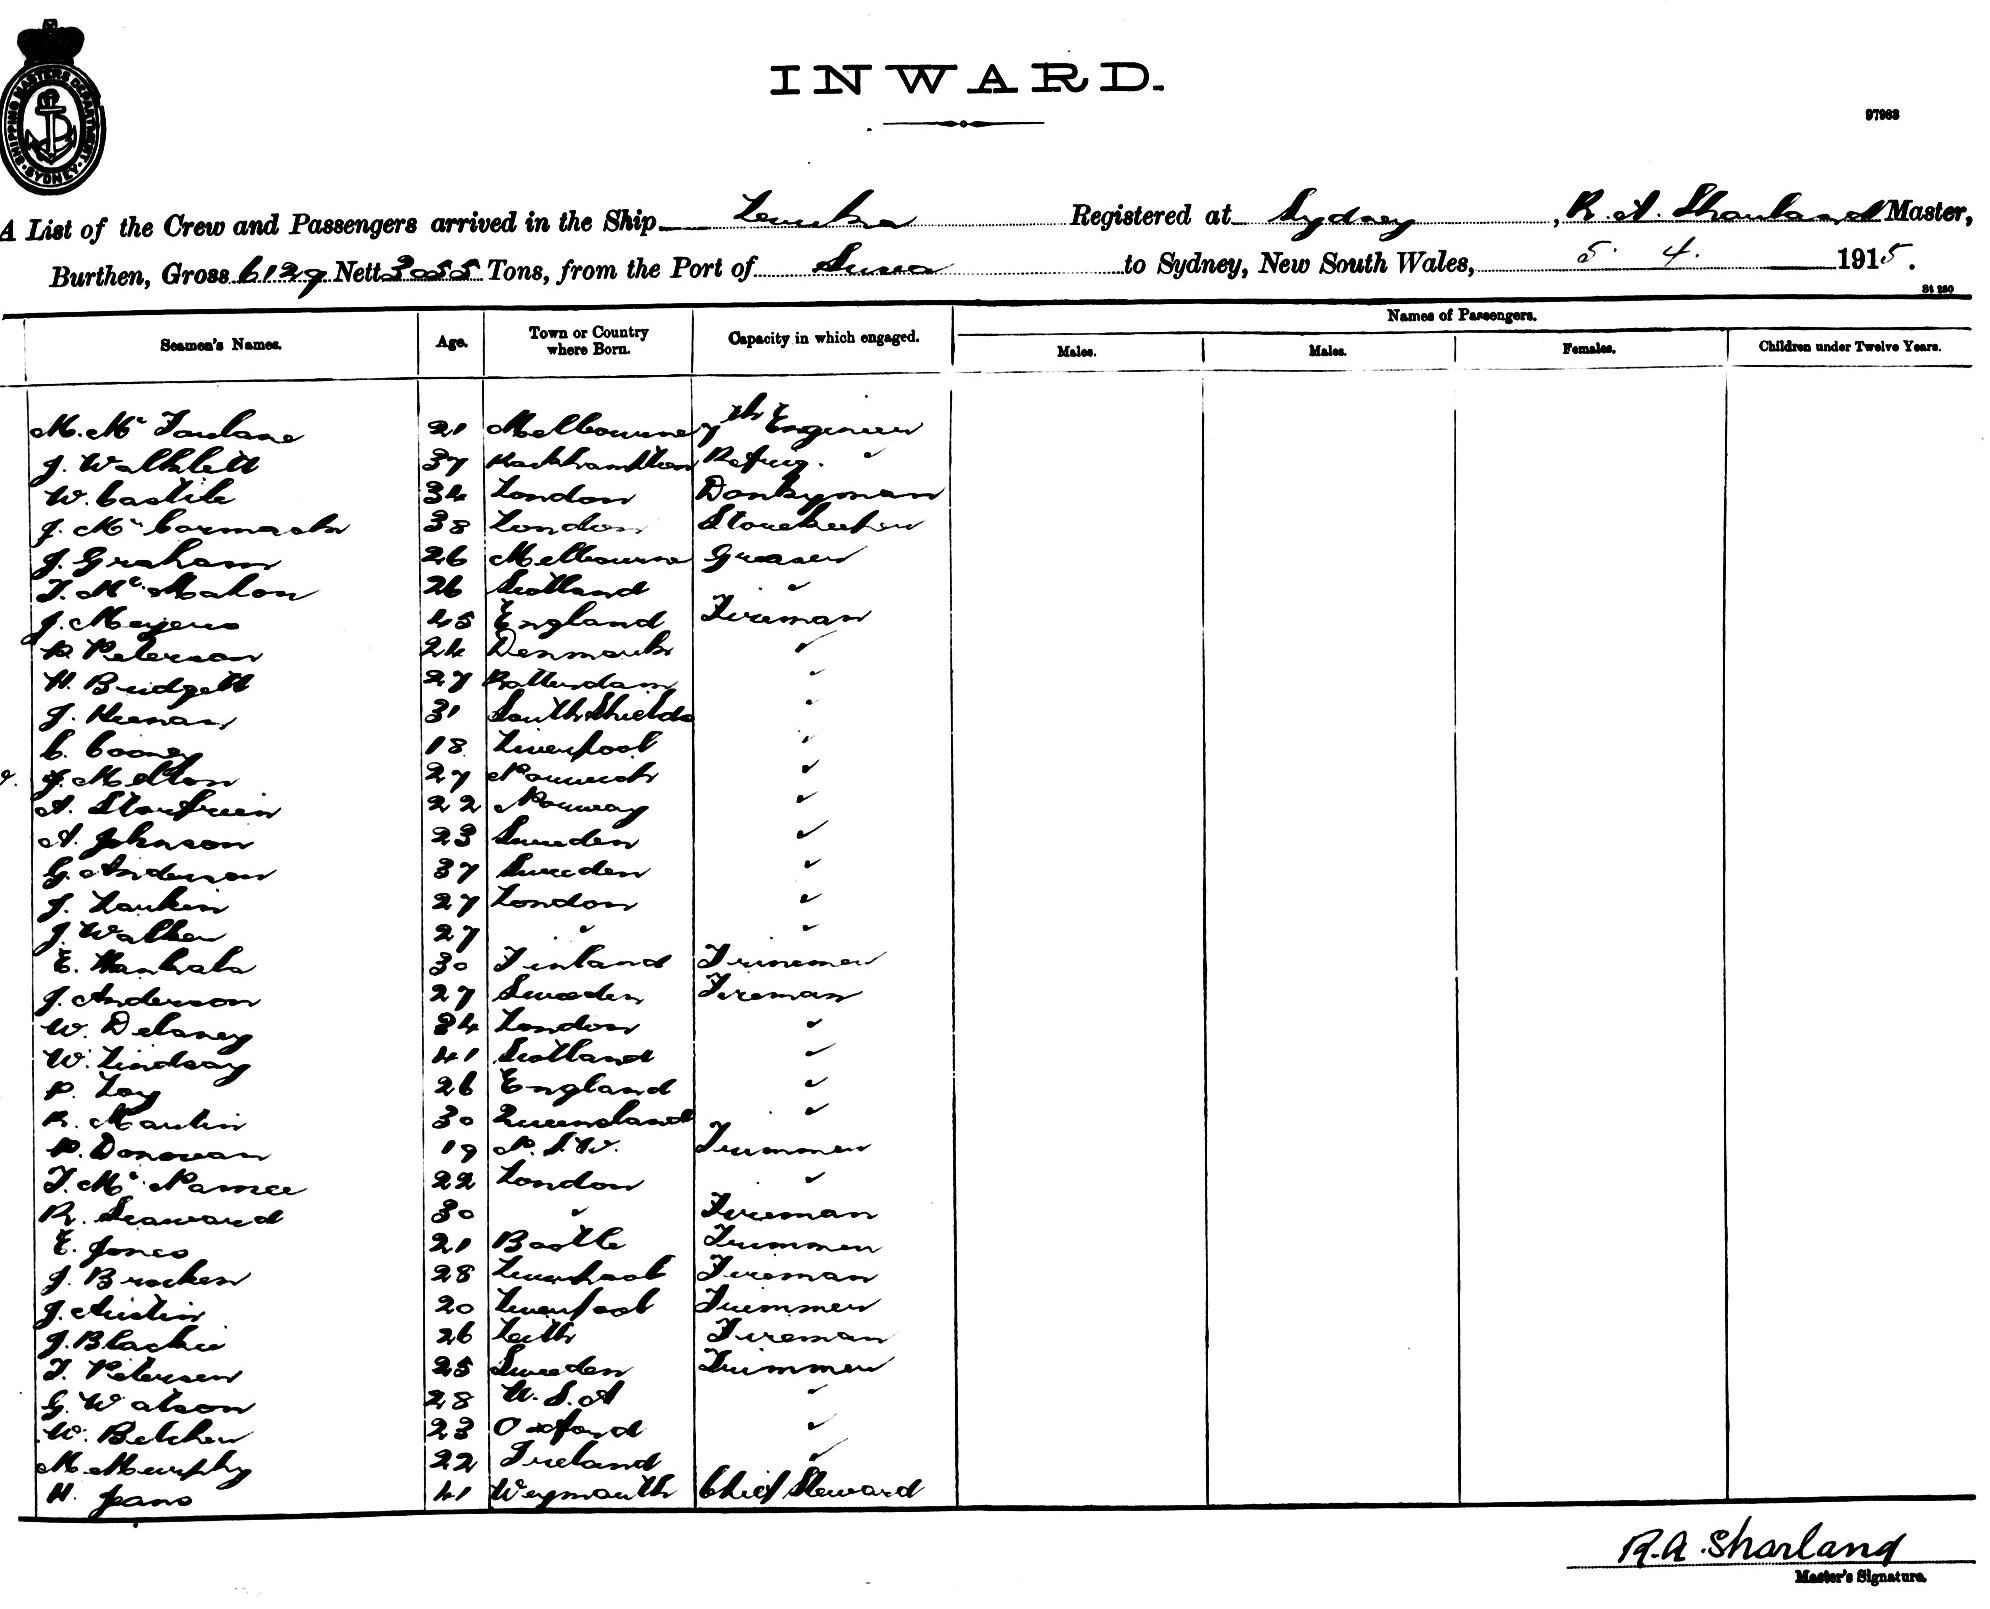 SHIPPING MASTERS DEPARTMENT · SYDNEY ·
INWARD.
97983
A List of the Crew and Passengers arrived in the Ship Levuka Registered at Sydney, R. A. Sharland Master,
Burthen, Gross 6129 Nett 3055 Tons, from the Port of Suva to Sydney, New South Wales, 5. 4. 1915.
St 250
Seamen's Names. Age. Town or Country where Born. Capacity in which engaged. Names of Passengers.
Males. Males. Females. Children under Twelve Years.
M. Mc Farlane 21 Melbourne 7th Engineer
J. Walklett 37 Rockhampton Refrig. "
W. Castile 34 London Donkyman
J. Mc Cormack 38 London Storekeeper
J. Graham 26 Melbourne Greaser
T. Mc Mahon 26 Scotland "
J. Meyers 45 England Fireman
P. Peterson 24 Denmark "
H. Bridgett 27 Rotterdam "
J. Keenan 31 South Shields "
C. Cooney 18 Liverpool "
J. Melton 27 Norwich "
A. 22 Norway "
A. Johnson 23 Sweden "
G. Anderson 37 Sweden "
J. Larkin 27 London "
J. Walker 27 " "
E. 30 Finland
J. Anderson 27 Sweden Fireman
W. Delaney 34 London "
W. Lindsay 41 Scotland "
P. Loy 26 England "
R. Martin 30 Queensland "
P. Donovan 19 N.S.W. Trimmer
T. Mc Namee 22 London "
R. Seaward 30 " Fireman
E. Jones 21 Bootle Trimmer
J. Brocken 28 Liverpool Fireman
J. Austin 20 Liverpool Trimmer
J. Blackie 26 Leith Fireman
T. Petersen 25 Sweden Trimmer
G. Watson 28 U.S.A "
W. Belcher 23 Oxford "
M. Murphy 22 Ireland "
H. Jeans 41 Weymouth Chief Steward
R.A. Sharland
Master's Signature.